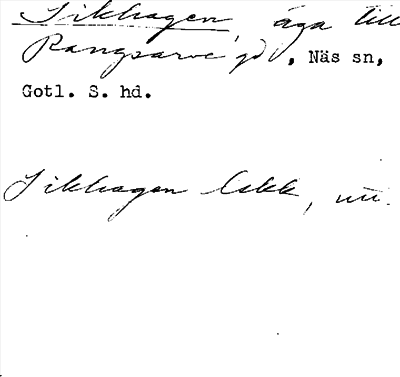 Sikhagen, äga till
Rangsarve gd, Näs sn,
Gotl. S. hd.
Sikhagen Cekk,